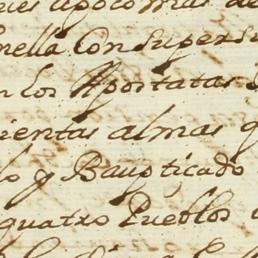 apoco mas de
en ella Con Supers
n los Apostatas
ientas almas q
o y Baupticado
quatro Pueblos